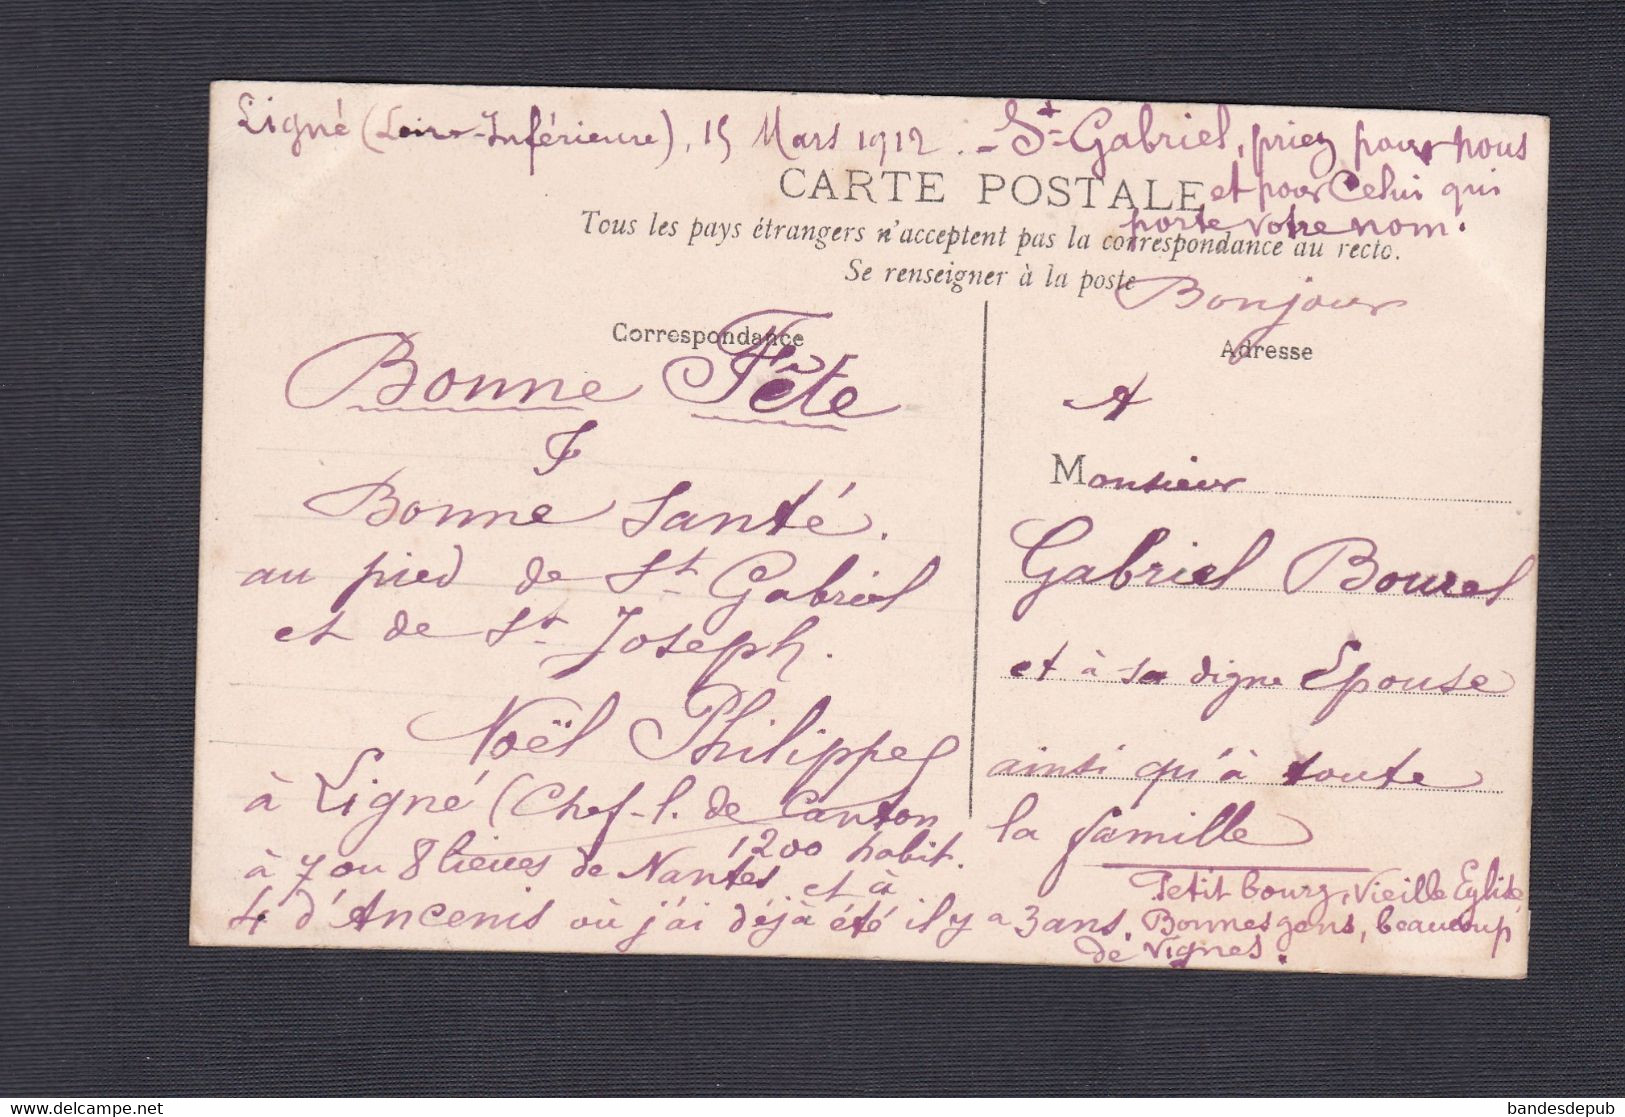 Ligné (Loire-Inférieure), 15 Mars 1912. - St-Gabriel, priez pour nous
et pour Celui qui
porte votre nom.
CARTE POSTALE
Tous les pays étrangers n'acceptent pas la correspondance au recto.
Se renseigner à la poste
Correspondance
Bonne Fête
Bonne Santé.
au pied de St-Gabriel
et de St-Joseph.
Noël Philippes
à Ligné (Chef-l. de Canton
1200 habit.
à 7 ou 8 lieues de Nantes et à
4 d'Ancenis où j'ai déjà été il y a 3 ans.
Bonjour
Adresse
A
Monsieur
Gabriel Bourel
et à sa digne Epouse
ainsi qu'à toute
la famille
Petit bourg, Vieille Eglise
Bonnes gens, beaucoup
de Vignes.
Delcampe.net
bandesdepub